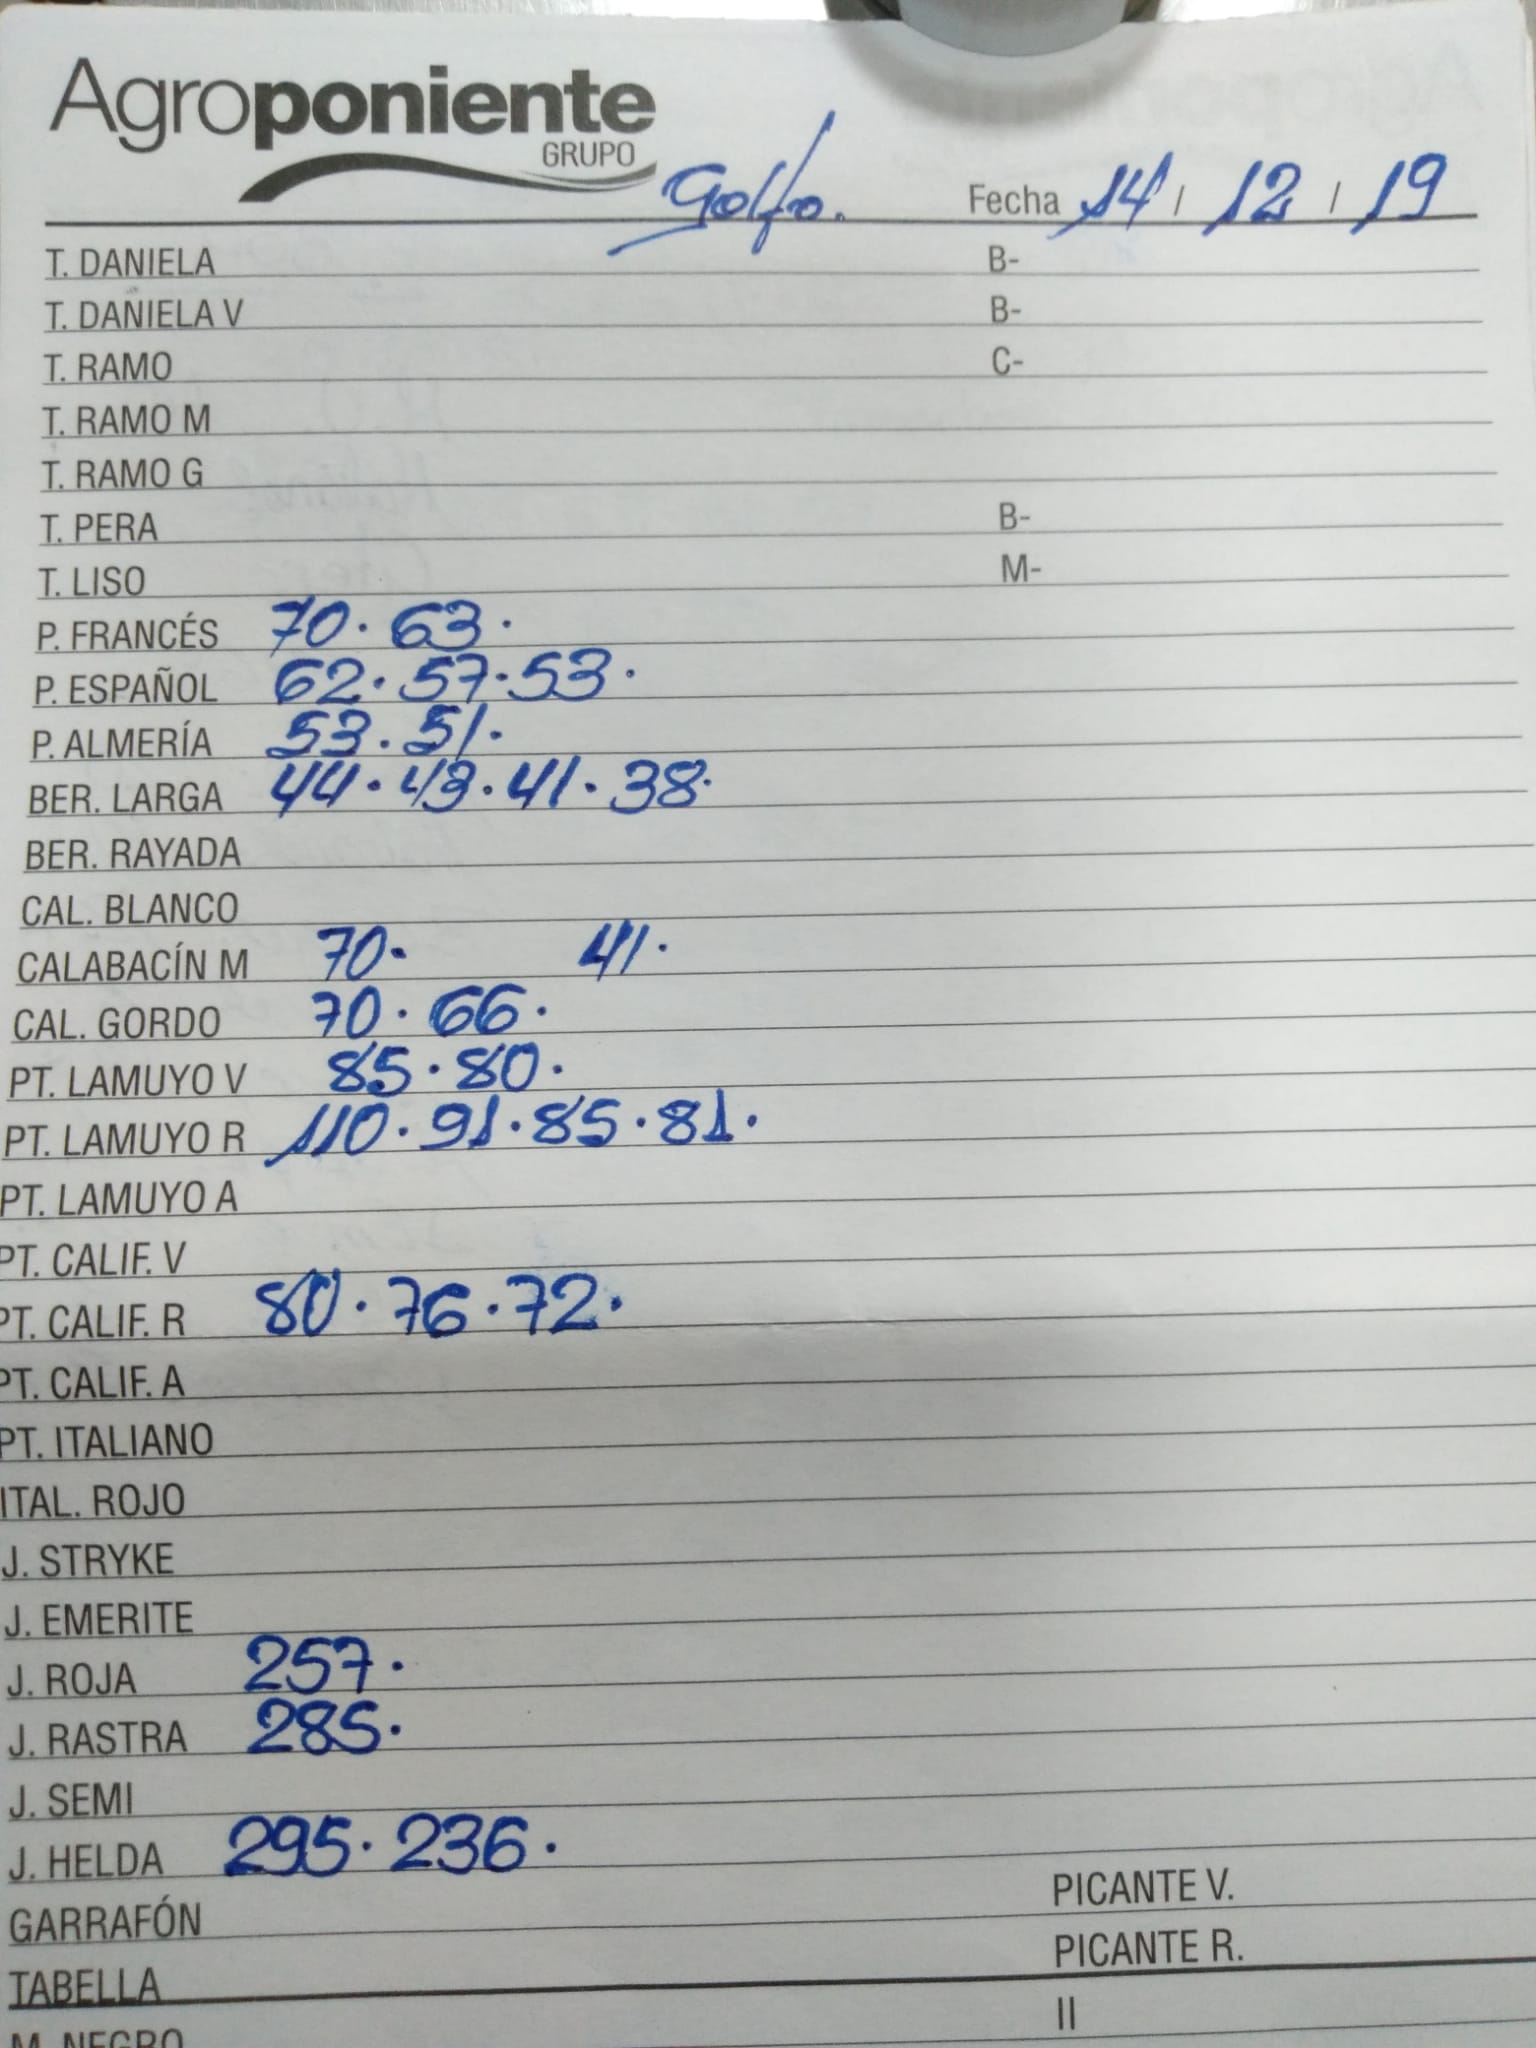 Agroponiente
GRUPO
Golfo. Fecha 14 / 12 / 19
T. DANIELA B-
T. DANIELA V B-
T. RAMO C-
T. RAMO M
T. RAMO G
T. PERA B-
T. LISO M-
P. FRANCÉS 70. 63.
P. ESPAÑOL 62. 57. 53.
P. ALMERÍA 53. 51.
BER. LARGA 44. 43. 41. 38.
BER. RAYADA
CAL. BLANCO
CALABACÍN M 70. 41.
CAL. GORDO 70. 66.
PT. LAMUYO V 85. 80.
PT. LAMUYO R 110. 91. 85. 81.
PT. LAMUYO A
PT. CALIF. V
PT. CALIF. R 80. 76. 72.
PT. CALIF. A
PT. ITALIANO
ITAL. ROJO
J. STRYKE
J. EMERITE
J. ROJA 257.
J. RASTRA 285.
J. SEMI
J. HELDA 295. 236.
GARRAFÓN PICANTE V.
TABELLA PICANTE R.
M. NEGRO II